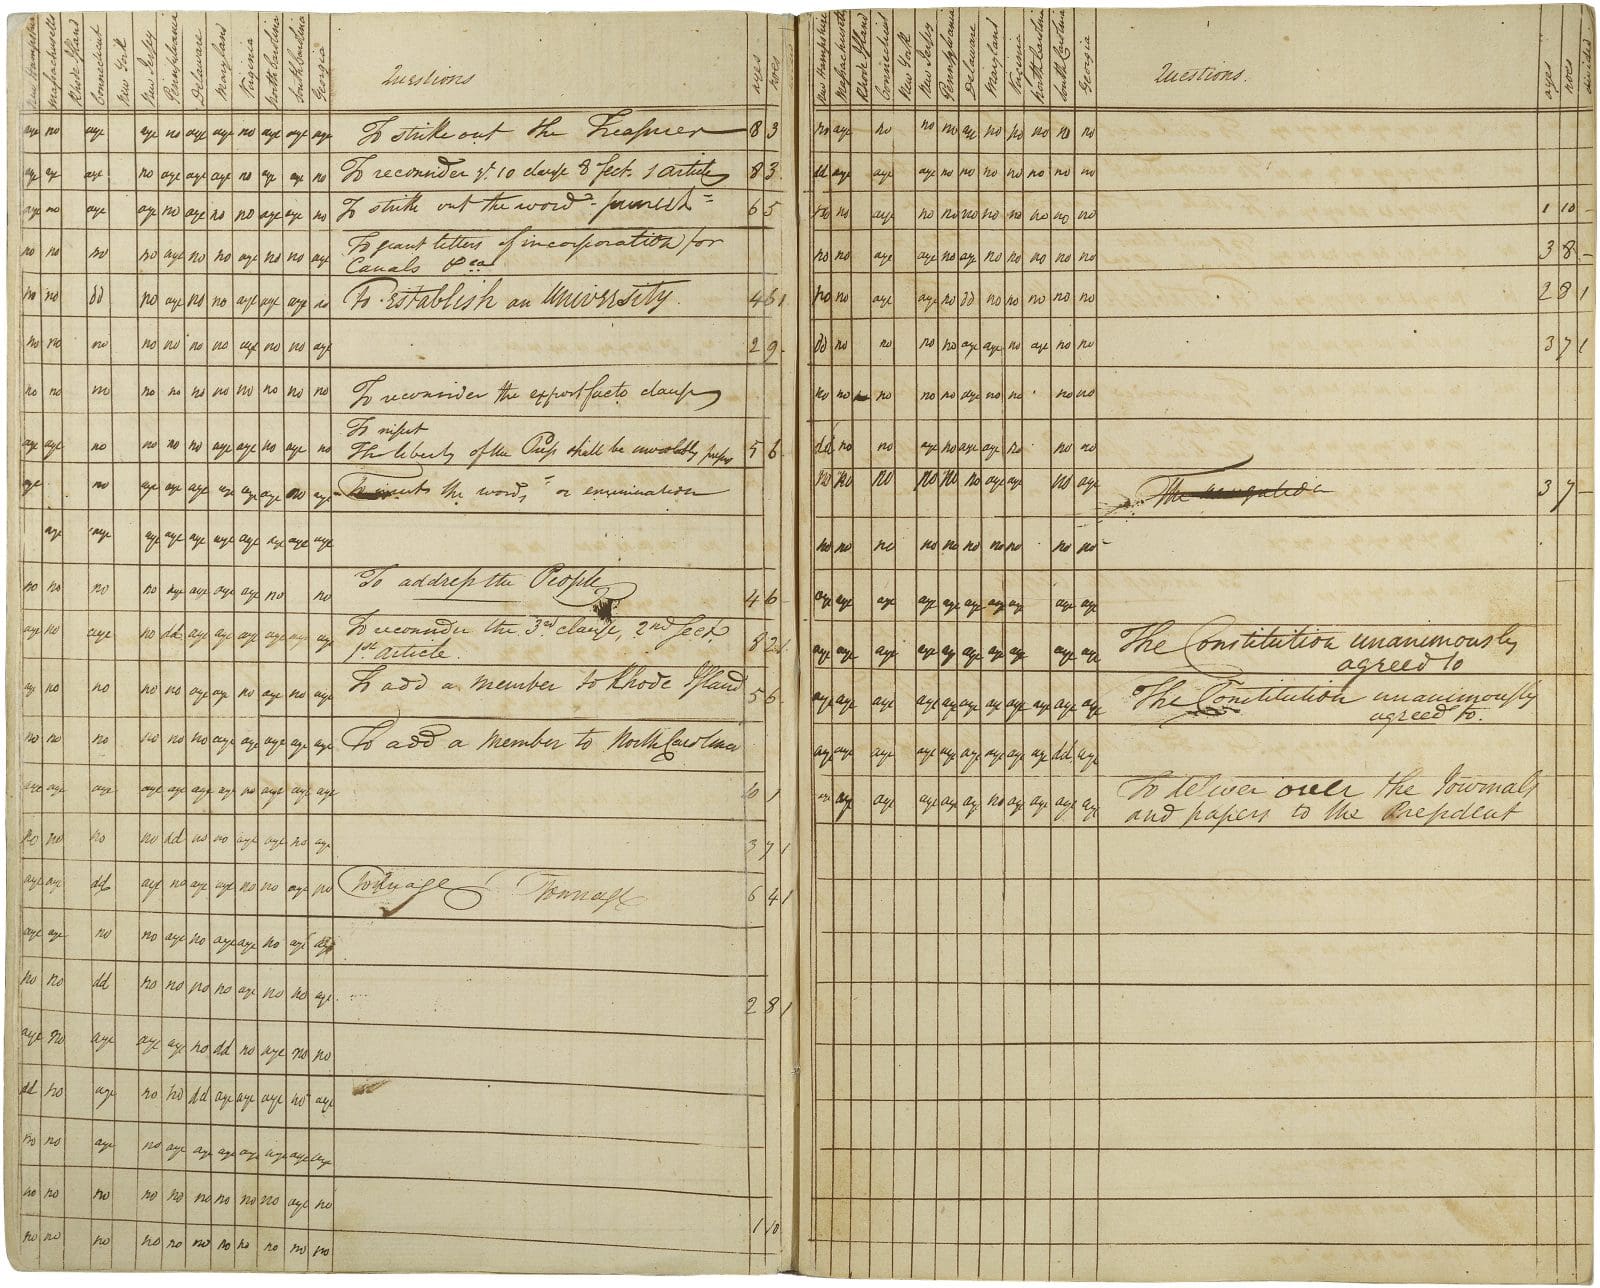 New Hampshire Massachusetts Rhode Island Connecticut New York New Jersey Pennsylvania Delaware Maryland Virginia North Carolina South Carolina Georgia Questions ayes noes
aye no aye aye no aye aye no aye aye aye To strike out the Treasurer 8 3
aye aye aye no aye aye aye no aye aye no To reconsider ye. 10 clause 8 sect. 1 article 8 3.
aye no aye aye no aye no no aye aye no To strike out the word "punish" 6 5
no no no no aye no no aye no no aye To grant letters of incorporation for
Canals &ca
no no dd no aye no no aye aye aye no To Establish an University. 4 6 1
no no no no no no no aye no no aye 2 9.
no no no no no no no no no no no To reconsider the expost facto clause
To insert
aye aye no no no no aye aye no aye no The liberty of the Press shall be inviolably 5 6
aye no aye aye aye aye aye aye no aye the words "or enumeration
aye aye aye aye aye aye aye aye aye aye
no no no no aye aye aye aye no no To address the People 4 6
aye no aye no dd aye aye aye aye aye aye To reconsider the 3rd clause, 2nd sect.
1st article. 8 2 1
aye no no no no aye aye no aye no aye To add a member to Rhode Island 5 6.
no no no no no no aye aye aye aye aye To add a member to North Carolina
aye aye aye aye aye aye aye no aye aye aye 10 1
no no no no dd no no aye aye no aye 3 7 1
aye aye dd aye no aye aye no no aye no Tonnage 6 4 1
aye aye no no aye no aye aye no aye
no no dd no no no no aye no no aye 2 8 1
aye no aye aye aye no dd no aye no no
dd no aye no no dd aye aye aye no aye
no no aye no aye aye aye aye aye aye aye
no no no no no no no no no aye no 1 10
no no no no no no no no no no no
New Hampshire Massachusetts Rhode Island Connecticut New York New Jersey Pennsylvania Delaware Maryland Virginia North Carolina South Carolina Georgia Questions. ayes noes divided
no aye no no no aye no no no no no
dd aye aye aye no no no no no no no
no no aye no no no no no no no no 1 10 -
no no aye aye no aye no no no no no 3 8 -
no no aye aye no dd no no no no no 2 8 1
dd no no no no aye aye no aye no no 3 7 1
no no no no no aye no no no no
dd no no aye no aye aye no no no
no no no no no no aye aye no aye The 3 7 -
no no no no no no no no no no
aye aye aye aye aye aye aye aye aye aye
aye aye aye aye aye aye aye aye aye aye The Constitution unanimously
agreed to
aye aye aye aye aye aye aye aye aye aye aye The Constitution unanimously
agreed to.
aye aye aye aye aye aye aye aye aye dd aye
aye aye aye aye aye no aye aye aye aye To deliver over the Journals
and papers to the President